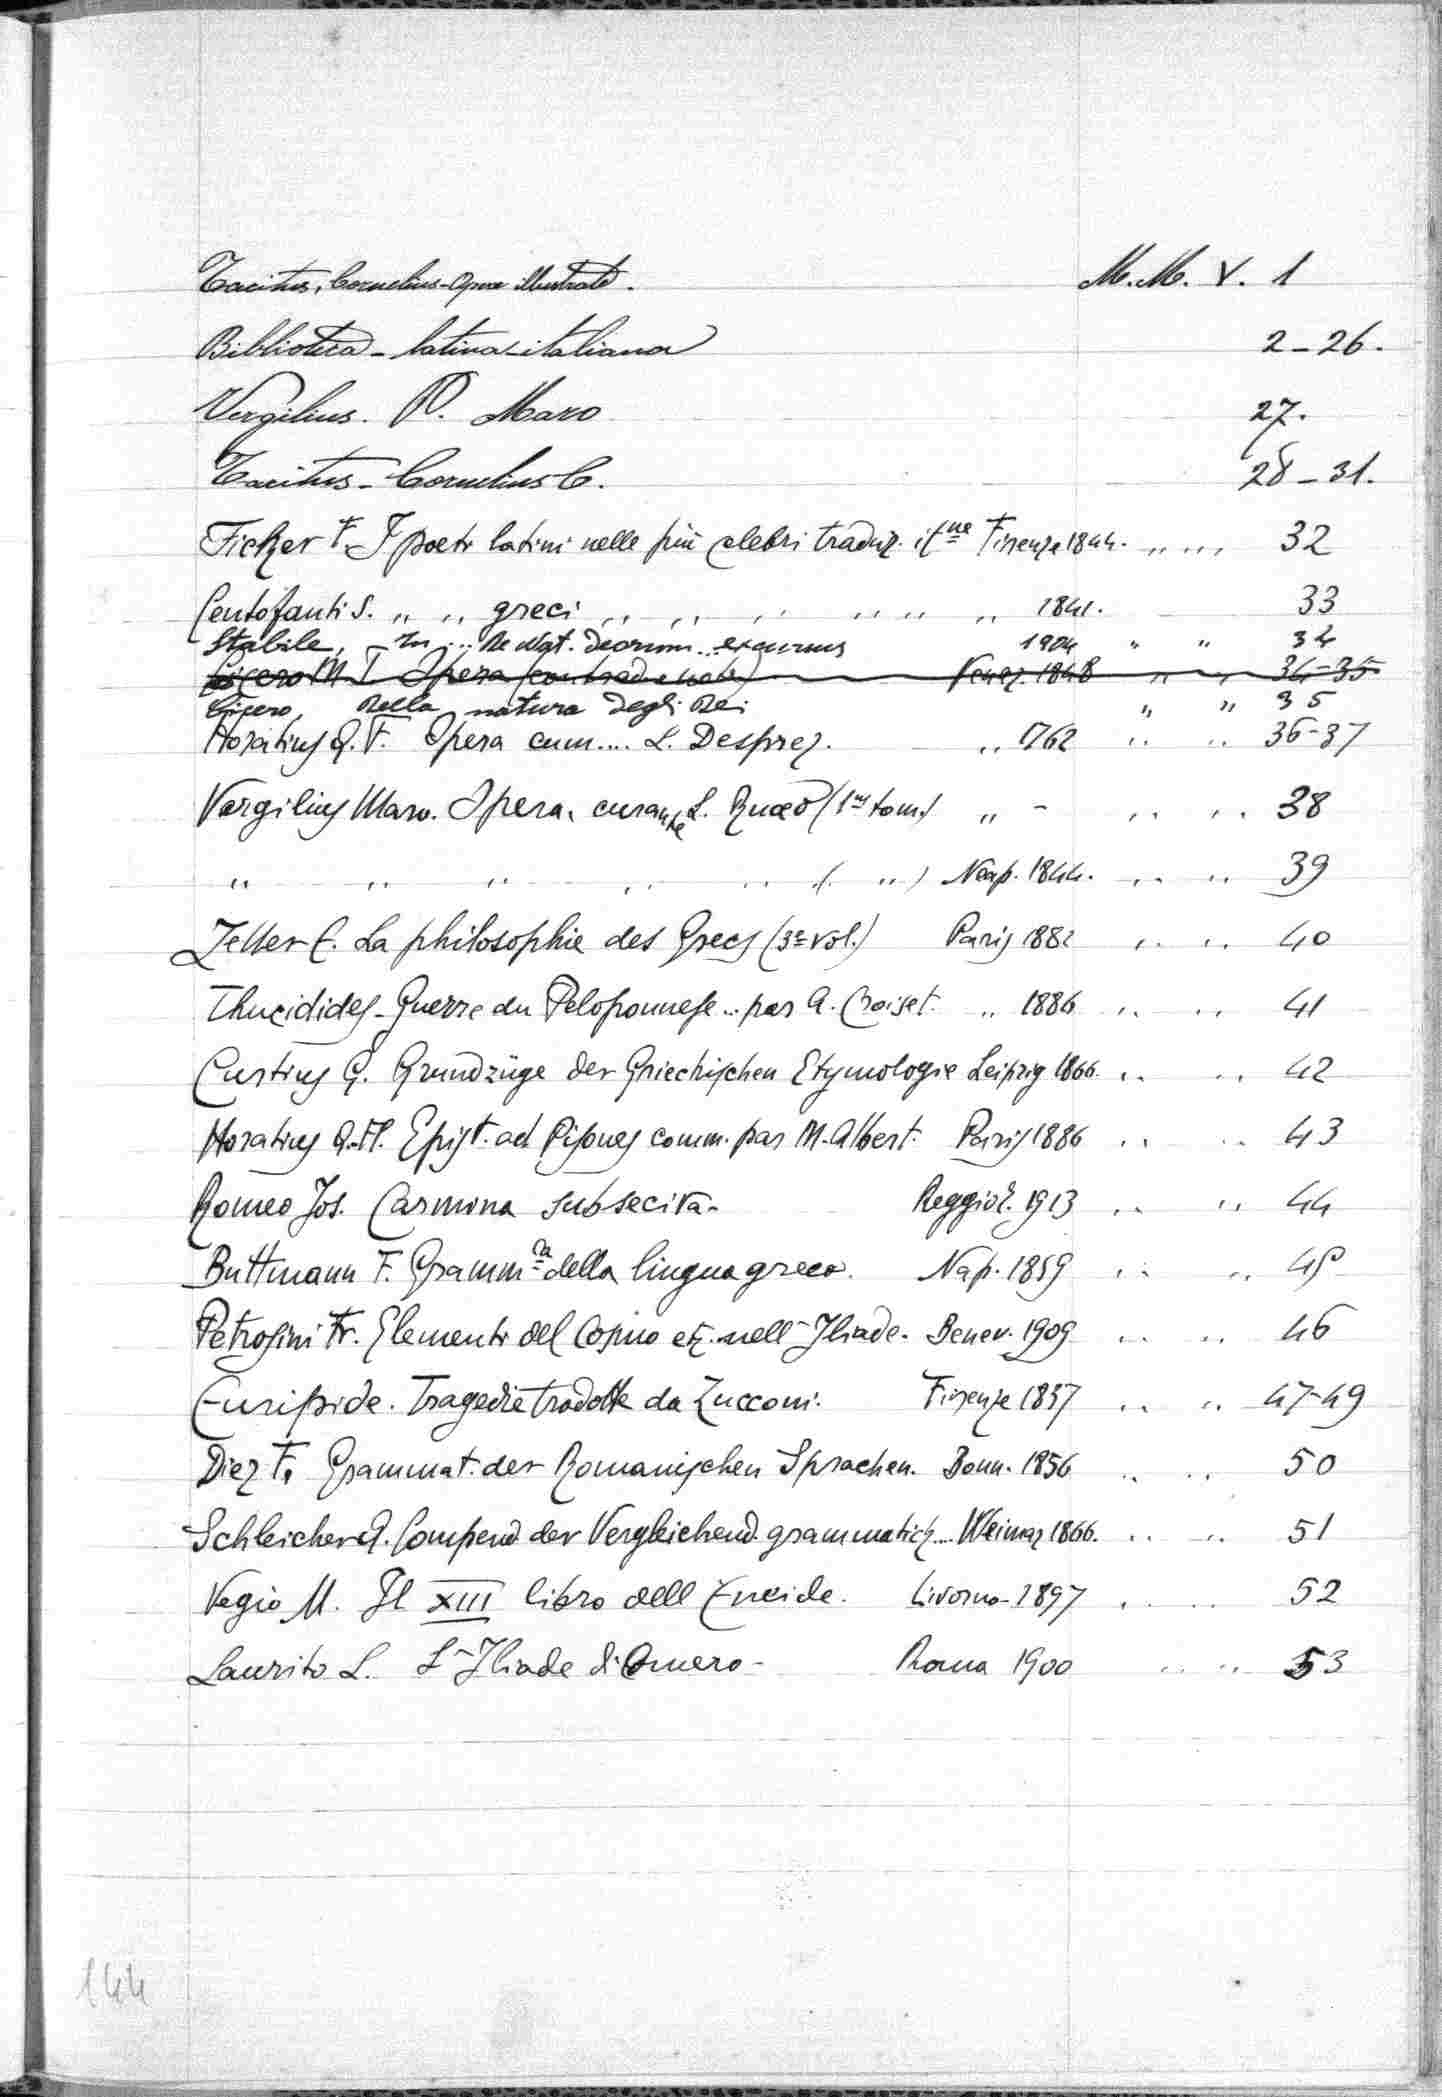 Tacitus, Cornelius - Opere illustrate. M. M. V. 1
Biblioteca - latina - italiana 2 - 26.
Vergilius. P. Maro 27.
Tacitus - Cornelius C. 28 - 31.
Ficker F. I poeti latini nelle più celebri traduz. it.ne Firenze 1844. " " " 32
Centofanti S. " " greci " " " " " " 1841. 33
Stabile, - In ... De Nat. Deorum ... excursus 1904 " " 34
Cicero M T Opera (con trad. e note) Venez. 1848 " " 34-35
Cicero, Della natura degli Dei " " 35
Horatius Q. F. Opera cum.... L. Desprez. " 1762 " " 36-37
Vergilius Maro. Opera, curante L. Ruæo (1us tom.) " - " " 38
" " " " " ( " ) Neap. 1844. " " 39
Zeller E. La philosophie des Grecs (3e vol.) Paris 1882 " " 40
Thucidides - Guerre du Peloponnese ... par A. Croiset. " 1886 " " 41
Curtius G. Grundzüge der Griechischen Etymologie Leipzig 1866. " " 42
Horatius Q. Fl. Epist. ad Pisones comm. par M. Albert. Paris 1886 " " 43
Romeo Jos. Carmina subseciva - Reggio C. 1913 " " 44
Buttmann F. Gramm.ca della lingua greca. Nap. 1859 " " 45
Petrosini Fr. Elementi del Cosmo etc. nell'Iliade. Benev. 1909 " " 46
Euripide. Tragedie tradotte da Zucconi. Firenze 1837 " " 47-49
Diez F. Grammat. der Romanischen Sprachen. Bonn. 1856 " " 50
Schleicher A. Compend. der Vergleichend. grammatick .... Weimar 1866. " " 51
Vegio M. Il XIII libro dell Eneide. Livorno - 1897 " " 52
Laurito L. L'Iliade di Omero - Roma 1900 " " 53
144